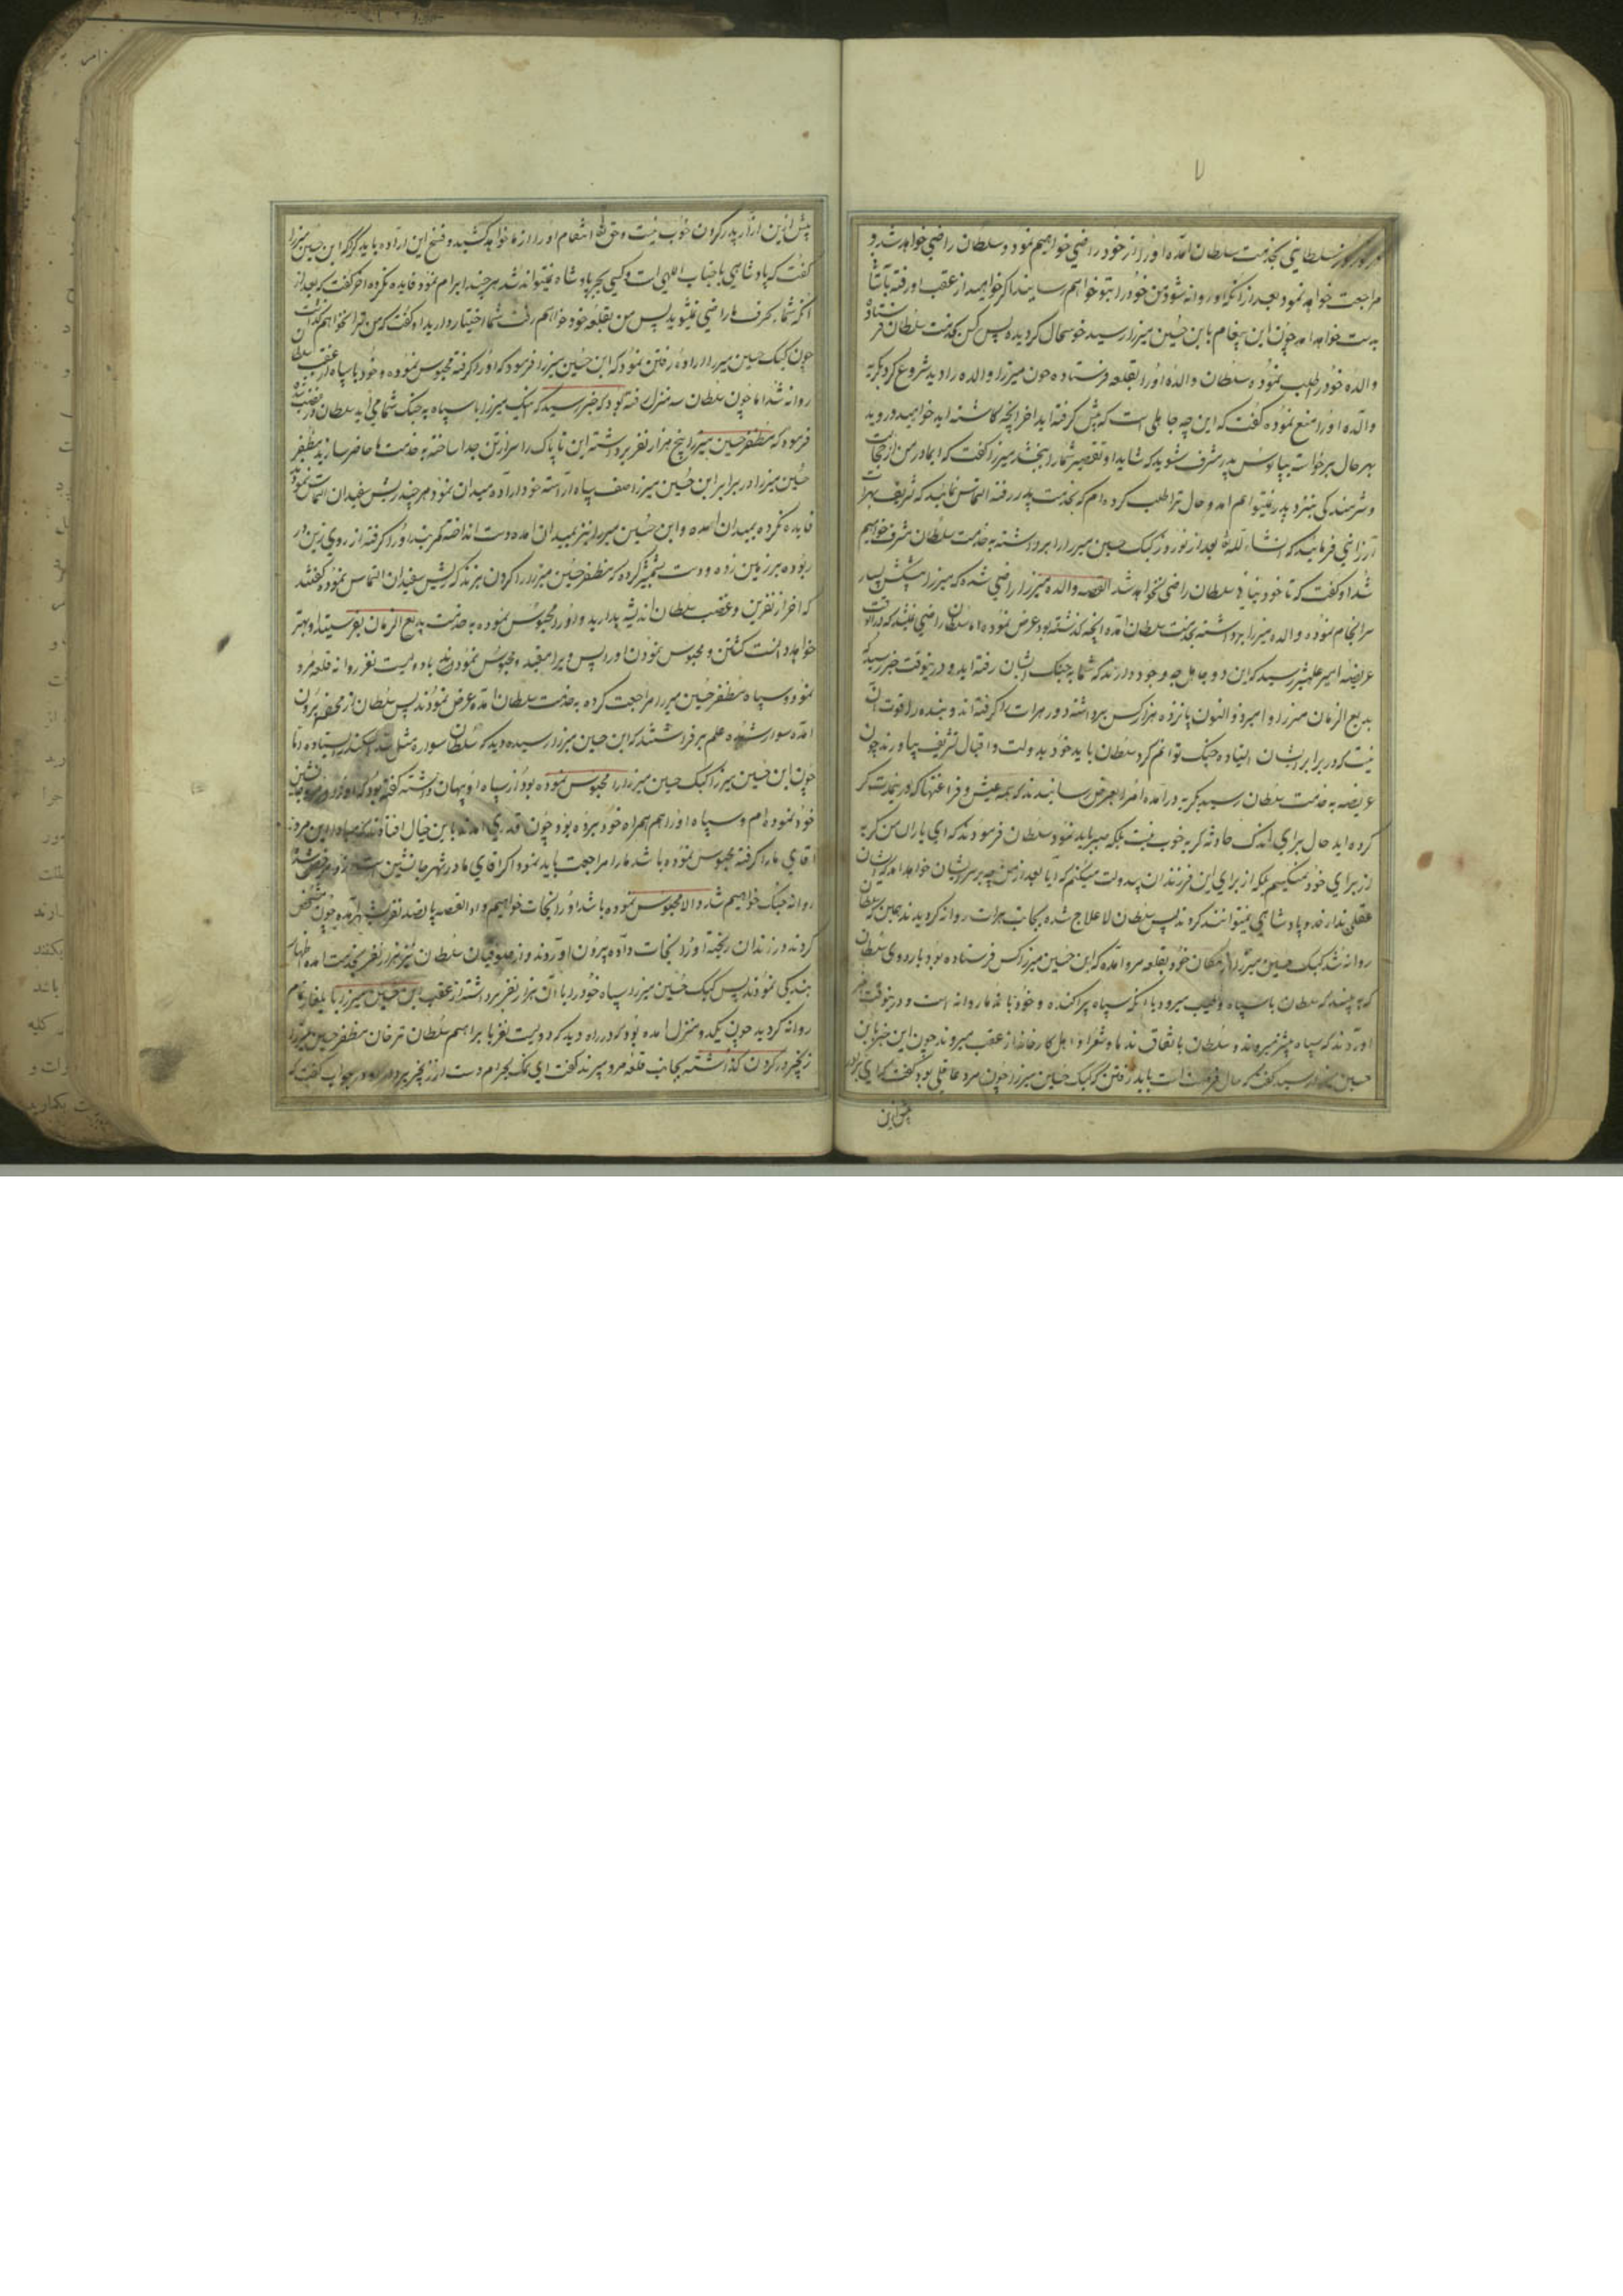 ۷
نوروز سلطانی بخدمت سلطان آمده او را از خود راضی خواهیم نمود و سلطان راضی خواهد شد و
مراجعت خواهد نمود بعد از آنکه او روانه شود من خود را بتو خواهم رسانید اگر خواهید از عقب او رفته
بدست خواهد آمد چون این پیغام بابن حسین میرزا رسید خوشحال گردیده پس کس بخدمت سلطان فرستاد
والده خود را طلب نموده سلطان والده او را بقلعه فرستاده چون میرزا والده را دید شروع کرد بگریه
والده او را منع نموده گفت که این چه جاهلی است که پیش گرفته اید آخر آنچه کاشته اید خواهید دروید
بهر حال برخواست بپابوس پدر مشرف شوید که شاید او تقصیر شما را ببخشد میرزا گفت که ای مادر من از خجالت
و شرمندگی بنزد پدر نمیتوانم آمد و حال ترا طلب کرده ام که بخدمت پدر رفته التماس نمائید که تشریف بهرات
ارزانی فرمایند که انشاء الله بعد از نوروز کپک حسین میرزا را برداشته به خدمت سلطان مشرف خواهیم
شد او گفت که تا خود نیائی سلطان راضی نخواهد شد القصه والده میرزا راضی شده که میرزا پیشکش بسیار
سرانجام نموده والده میرزا برداشته بخدمت سلطان آمده آنچه گذشته بود عرض نموده اما سلطان راضی نمیشد که در آنوقت
عریضه امیر علیشیر رسید که این دو جاهل چه وجود دارند که شما به جنگ ایشان رفته اید و درینوقت خبر رسید که
بدیع الزمان میرزا و امیر ذوالنون پانزده هزار کس برداشته دور هرات را گرفته اند و بنده را قوت آن
نیست که در برابر ایشان ایستاده جنگ توانم کرد سلطان باید خود بدولت و اقبال تشریف بیاورند چون
عریضه به خدمت سلطان رسید بگریه درآمده امرا بعرض رسانیدند که همه عیش و فراغتها که در
کرده اید حال برای اندک حادثه گریه خوب نیست بلکه صبر باید نمود سلطان فرمودند که ای یاران من گریه
از برای خود نمیکنم بلکه از برای این فرزندان بیدولت میکنم که آیا بعد از من چه بر سر ایشان خواهد آمد که ایشان
عقلی ندارند و پادشاهی نمیتوانند کرد پس سلطان لاعلاج شده بجانب هرات روانه گردیدند همین که سلطان
روانه شد کپک حسین میرزا از مکان خود بقلعه مرو آمده که ابن حسین میرزا کس فرستاده بود باردوی سلطان
که به بیند که سلطان با سپاه میرود یا آنکه سپاه پراکنده و خود با ندما روانه است و درینوقت خبر
آوردند که سپاه پیشتر میروند و سلطان باتفاق ندما و شعرا و اهل کارخانه از عقب میروند چون این خبر بابن
حسین میرزا رسید گفت که حال فرصت است باید رفتن که کپک حسین میرزا چون مرد عاقلی بود گفت که ای برادر
پیش ازین
پیش ازین آزار پدر کردن خوب نیست و حق تعالی انتقام او را از ما خواهد کشید و فسخ این اراده باید کرد که ابن حسین میرزا
گفت که پادشاهی با جناب الهی است و کسی بجبر پادشاه نمیتواند شد هر چند ابرام نمود فایده نکرده آخر گفت که بعد از
آنکه شما بحرف ما راضی نمیشوید پس من بقلعه خود خواهم رفت شما اختیار دارید او گفت که من ترا نخواهم گذاشت
چون کپک حسین میرزا اراده رفتن نمود که ابن حسین میرزا فرمود که او را گرفته محبوس نموده و خود با سپاه از عقب سلطان
روانه شد اما چون سلطان سه منزل رفته بود که خبر رسید که اینک میرزا با سپاه به جنگ شما می آید سلطان در غضب شده
فرمود که مظفر حسین میرزا پنج هزار نفر برداشته این ناپاک را سر از تن جدا ساخته به خدمت ما حاضر سازید مظفر
حسین میرزا در برابر ابن حسین میرزا صف سپاه آراسته خود اراده میدان نمود هر چند ریش سفیدان التماس نمودند
فایده نکرده بمیدان آمده و ابن حسین میرزا نیز بمیدان آمده دست انداخته کمربند او را گرفته از روی زین در
ربوده بر زمین زده و دست بشمشیر کرده که مظفر حسین میرزا را گردن بزند که ریش سفیدان التماس نموده گفتند
که آخر از نفرین و غضب سلطان اندیشه بدارید و او را محبوس نموده به خدمت بدیع الزمان بفرستید او بهتر
خواهد دانست کشتن و محبوس نمودن او را پس ویرا مقید و محبوس نموده با دویست نفر روانه قلعه مرو
نمود و سپاه مظفر حسین میرزا مراجعت کرده به خدمت سلطان آمده عرض نمودند پس سلطان از محفه بیرون
آمده سوار شده علم برافراشتند که ابن حسین میرزا رسیده دید که سلطان سواره مثل سد سکندر ایستاده اما
چون ابن حسین میرزا کپک حسین میرزا را محبوس نموده بود از سپاه او پنهان داشته گفته بود که او را در مرو جانشین
خود نموده ام و سپاه او را هم همراه خود برده بود چون قدری آمدند باین خیال افتادند که مبادا این مرد
آقای ما را گرفته محبوس نموده باشد ما را مراجعت باید نمود اگر آقای ما در شهر جانشین است
روانه جنگ خواهیم شد والا محبوس نموده باشد او را نجات خواهیم داد القصه پانصد نفر بشهر آمده چون مشخص
کردند در زندان ریخته او را نجات داده بیرون آوردند و از ملوقیان سلطان نیز هزار نفر بخدمت آمده اظهار
بندگی نمودند پس کپک حسین میرزا سپاه خود را با آن هزار نفر برداشته از عقب ابن حسین میرزا با یلغار تمام
روانه گردید چون یکدو منزل آمده بود که در راه دید که دویست نفر با ابراهیم سلطان ترخان مظفر حسین میرزا را
زنجیر در گردن گذاشته بجانب قلعه مرو میبرند گفت ای نمک بحرام دست از زنجیر بردار او در جواب گفت که